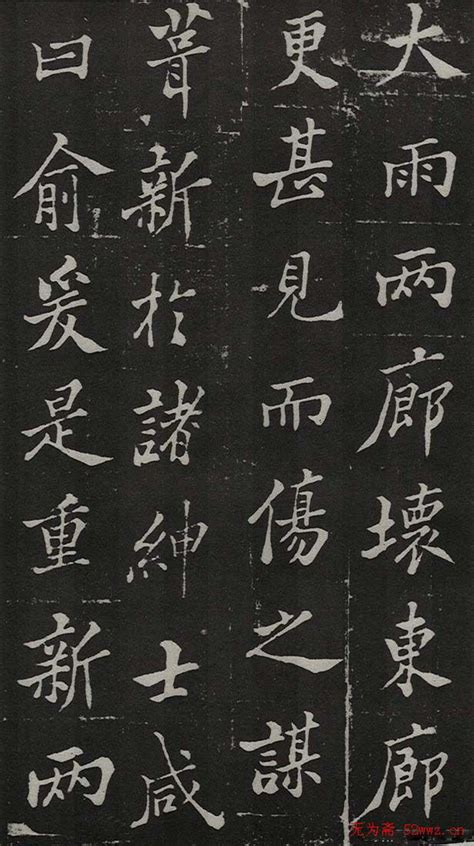 大雨两廊壞東廊
更甚見而傷之謀
葺新於諸紳士咸
曰俞爰是重新两
无为斋-52wwz.cn